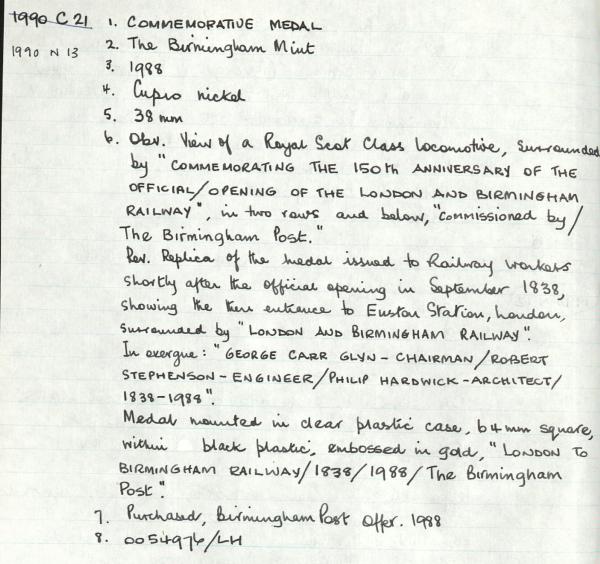 1990 C 21 1. COMMEMORATIVE MEDAL
1990 N 13 2. The Birmingham Mint
3. 1988
4. Cupro nickel
5. 38 mm
6. Obv. View of a Royal Scot Class locomotive, surrounded
by "COMMEMORATING THE 150th ANNIVERSARY OF THE
OFFICIAL/OPENING OF THE LONDON AND BIRMINGHAM
RAILWAY", in two rows and below, "Commissioned by/
The Birmingham Post."
Rev. Replica of the medal issued to Railway workers
shortly after the official opening in September 1838,
showing the then entrance to Euston Station, London,
surrounded by "LONDON AND BIRMINGHAM RAILWAY".
In exergue: "GEORGE CARR GLYN - CHAIRMAN/ROBERT
STEPHENSON - ENGINEER/PHILIP HARDWICK - ARCHITECT/
1838-1988".
Medal mounted in clear plastic case, 64 mm square,
within black plastic, embossed in gold, "LONDON TO
BIRMINGHAM RAILWAY/1838/1988/The Birmingham
Post".
7. Purchased, Birmingham Post Offer. 1988
8. 0054976/LH